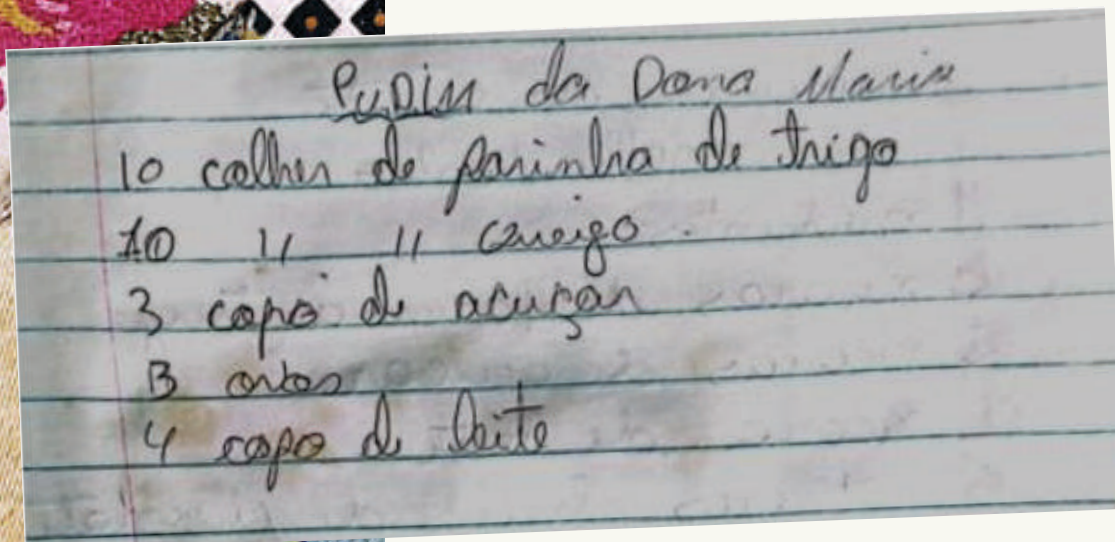 PuDiM da Dona Maria
10 colher de farinha de trigo
10 " " queigo.
3 copo de acuçar
ovos
4 copo de leite